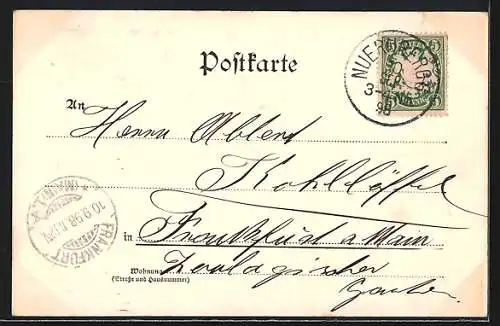 Postkarte
An
Herrn Albert
Kohllöffel
in Frankfurt a Main
Wohnung
(Straße und Hausnummer)
Zoologischer
Garten
NUERNBERG
3-4
98
FRANKFURT
10.9.98
(MAIN)